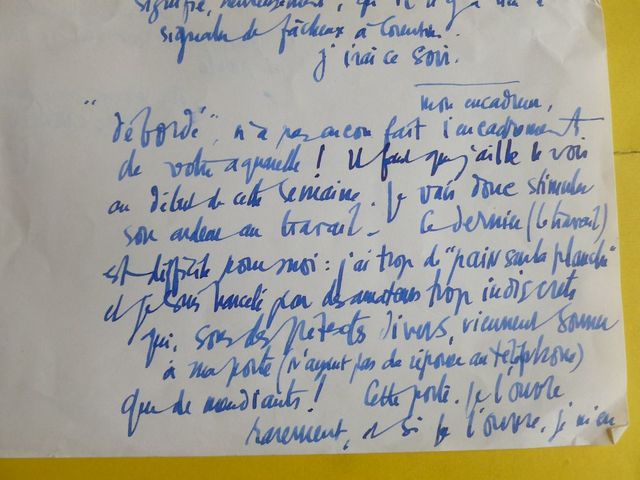 signifie, heureusement, qu'il n'y a rien à
signaler de fâcheux à Corentin.
j'irai ce soir.
mon encadreur,
"débordé", n'a pas encore fait l'encadrement
de votre aquarelle ! Il faut que j'aille le voir
au début de cette semaine. Je vais donc stimuler
son ardeur au travail - Ce dernier (le travail)
est difficile pour moi : j'ai trop de "pain sur la planche"
et je suis harcelé par des amateurs trop indiscrets
qui, sous des prétextes divers, viennent sonner
à ma porte (n'ayant pas de réponse au téléphone)
que de mendiants ! Cette porte, je l'ouvre
rarement, et si je l'ouvre, je m'en